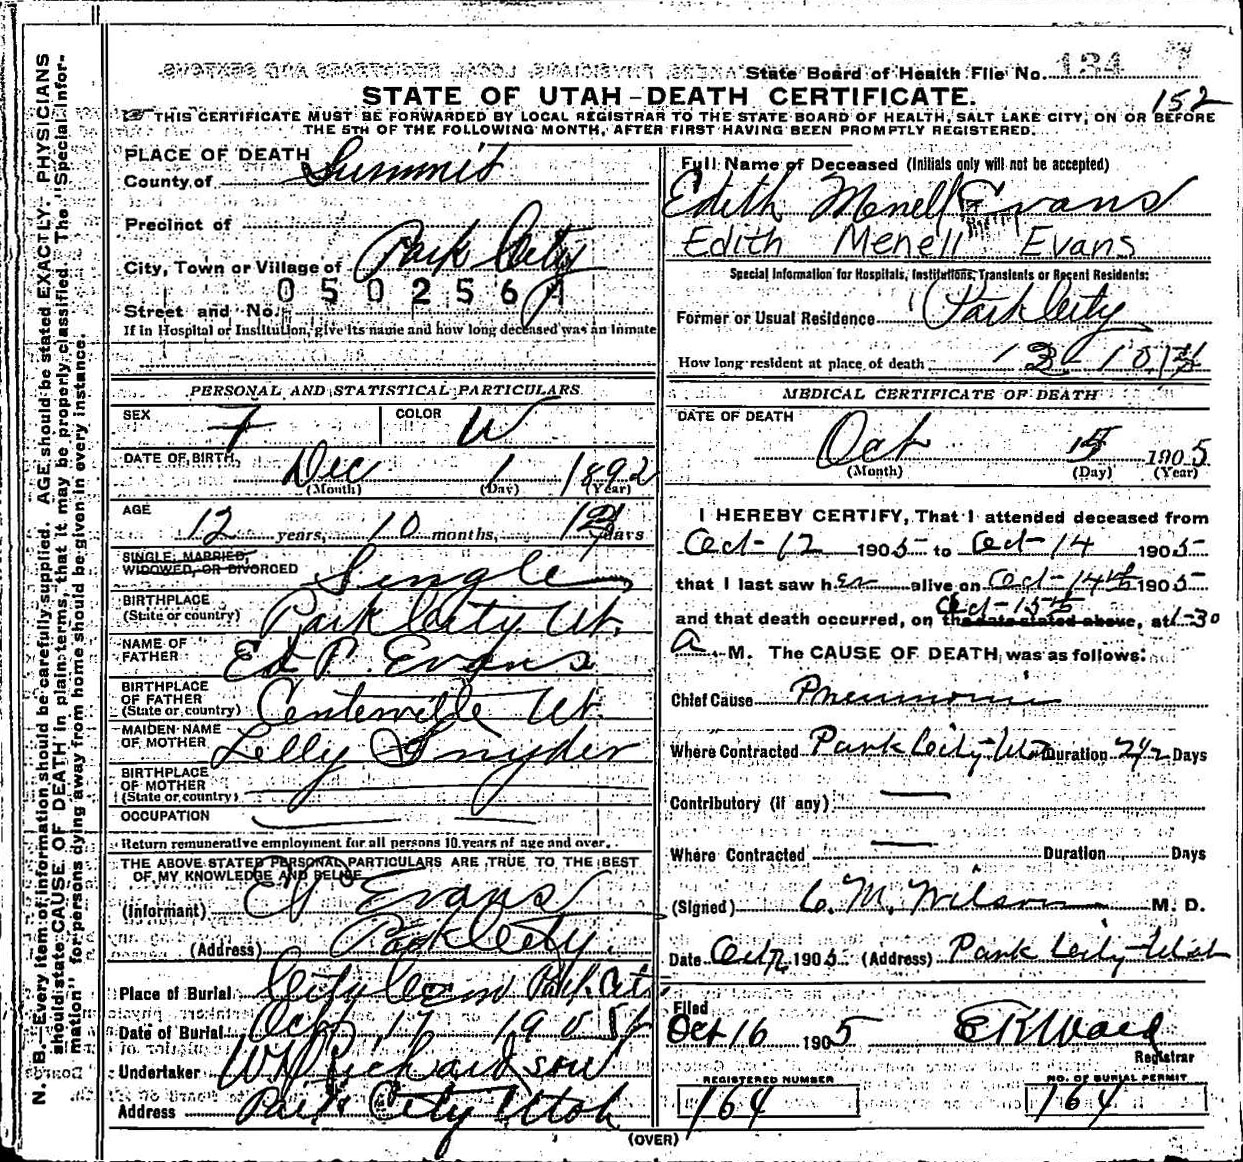 State Board of Health File No. 134
STATE OF UTAH-DEATH CERTIFICATE.
152
THIS CERTIFICATE MUST BE FORWARDED BY LOCAL REGISTRAR TO THE STATE BOARD OF HEALTH, SALT LAKE CITY, ON OR BEFORE
THE 5TH OF THE FOLLOWING MONTH, AFTER FIRST HAVING BEEN PROMPTLY REGISTERED.
N. B.—Every item of information should be carefully supplied. AGE should be stated EXACTLY. PHYSICIANS
should state CAUSE OF DEATH in plain terms, that it may be properly classified. The "Special Infor-
mation" for persons dying away from home should be given in every instance.
PLACE OF DEATH
County of Summit
Precinct of
City, Town or Village of Park City
0502561
Street and No.
If in Hospital or Institution, give its name and how long deceased was an inmate
PERSONAL AND STATISTICAL PARTICULARS
SEX F COLOR W
DATE OF BIRTH Dec 1 1892
(Month) (Day) (Year)
AGE 12 years, 10 months, days
SINGLE, MARRIED,
WIDOWED, OR DIVORCED Single
BIRTHPLACE
(State or country) Park City Ut.
NAME OF
FATHER Ed P. Evans
BIRTHPLACE
OF FATHER
(State or country) Centerville Ut.
MAIDEN NAME
OF MOTHER Lelly Snyder
BIRTHPLACE
OF MOTHER
(State or country)
OCCUPATION
Return remunerative employment for all persons 10 years of age and over.
THE ABOVE STATED PERSONAL PARTICULARS ARE TRUE TO THE BEST
OF MY KNOWLEDGE AND BELIEF
(Informant) Evans
(Address) Park City.
Place of Burial City Cem Park City
Date of Burial Oct 17 1905
Undertaker W Richardson
Address Park City Utah
Full Name of Deceased (Initials only will not be accepted)
Edith Menell Evans
Edith Menell Evans
Special Information for Hospitals, Institutions, Transients or Recent Residents:
Former or Usual Residence Park City
How long resident at place of death
MEDICAL CERTIFICATE OF DEATH
DATE OF DEATH
Oct 15 1905
(Month) (Day) (Year)
I HEREBY CERTIFY, That I attended deceased from
Oct-12 1905 to Oct-14 1905
that I last saw her alive on Oct-14th 1905
Oct-15th
and that death occurred, on the date stated above, at 1-30
a M. The CAUSE OF DEATH was as follows:
Chief Cause Pneumonia
Where Contracted Park City-Utah Duration 2 1/2 Days
Contributory (if any)
Where Contracted Duration Days
(Signed) C. M. Wilson M. D.
Date Oct 1905 (Address) Park City-Utah
Filed
Oct 16 1905 E K Ward
Registrar
REGISTERED NUMBER
164
NO. OF BURIAL PERMIT
164
(OVER)